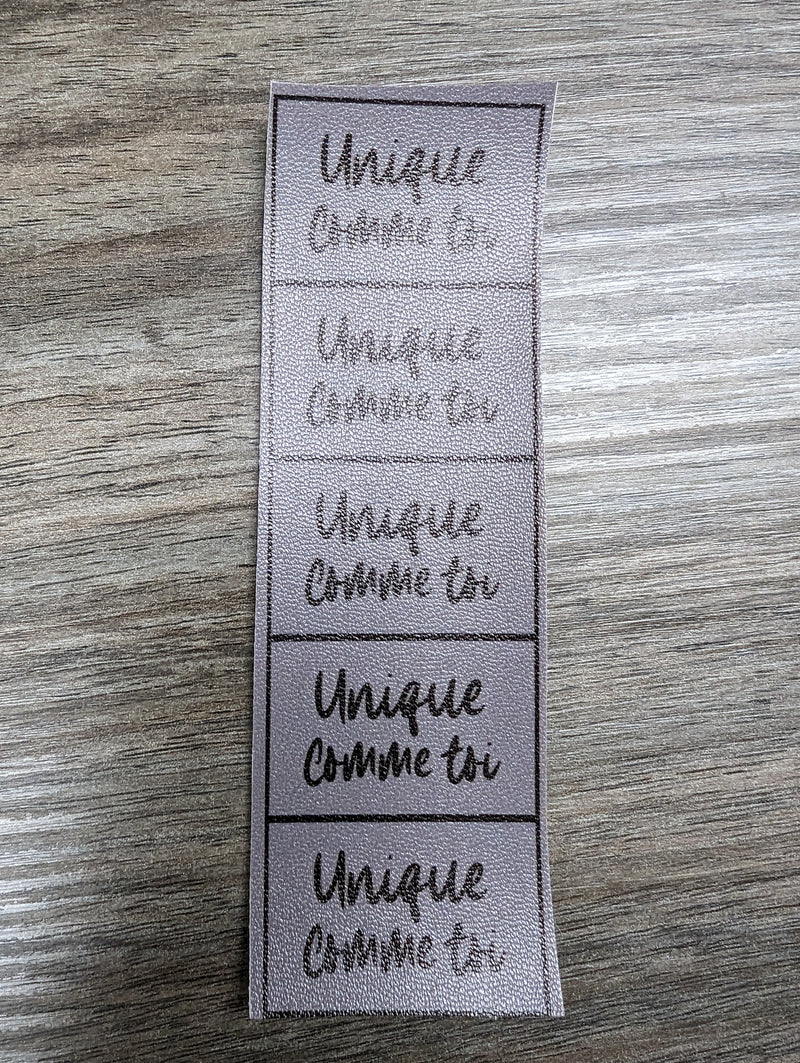 Unique
Comme toi
Unique
Comme toi
Unique
Comme toi
Unique
Comme toi
Unique
Comme toi